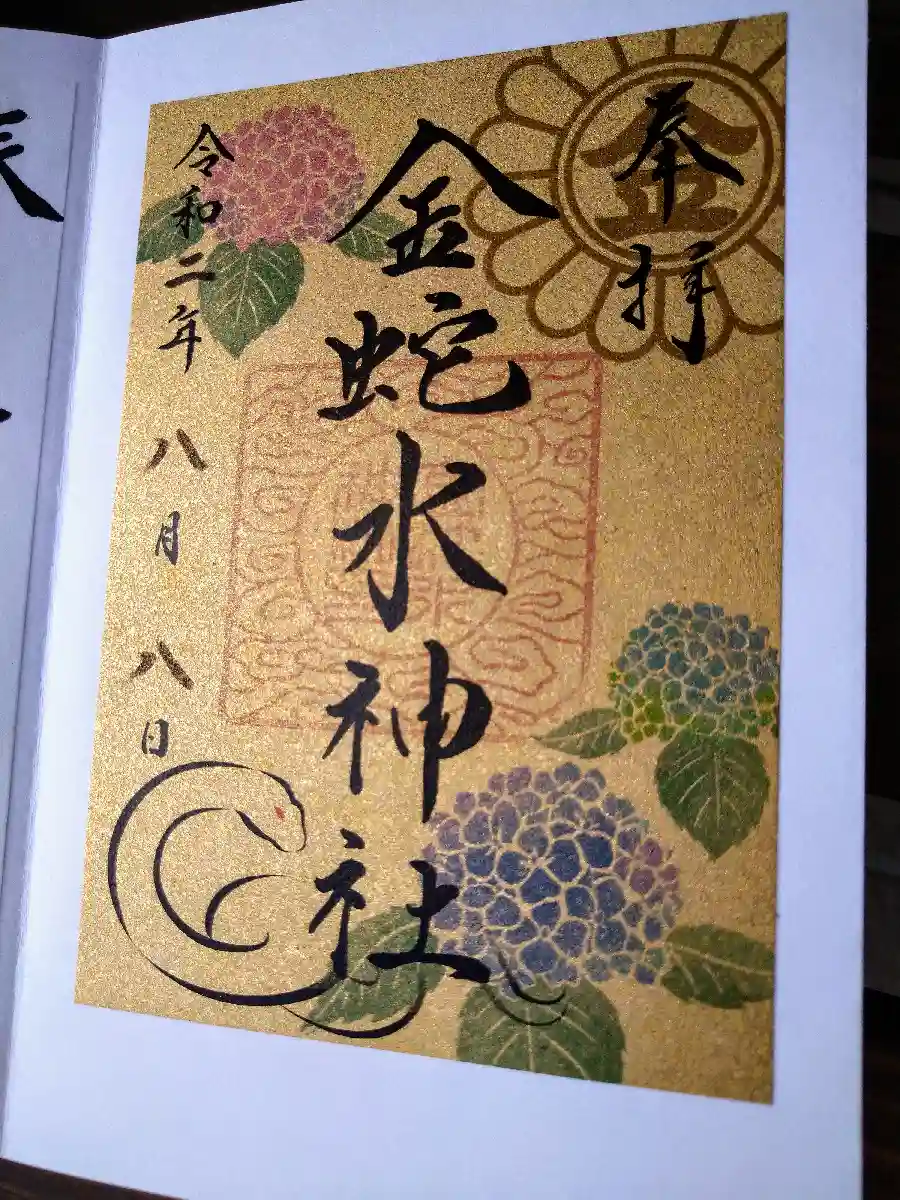 奉拝
金
金蛇水神社
令和二年八月八日